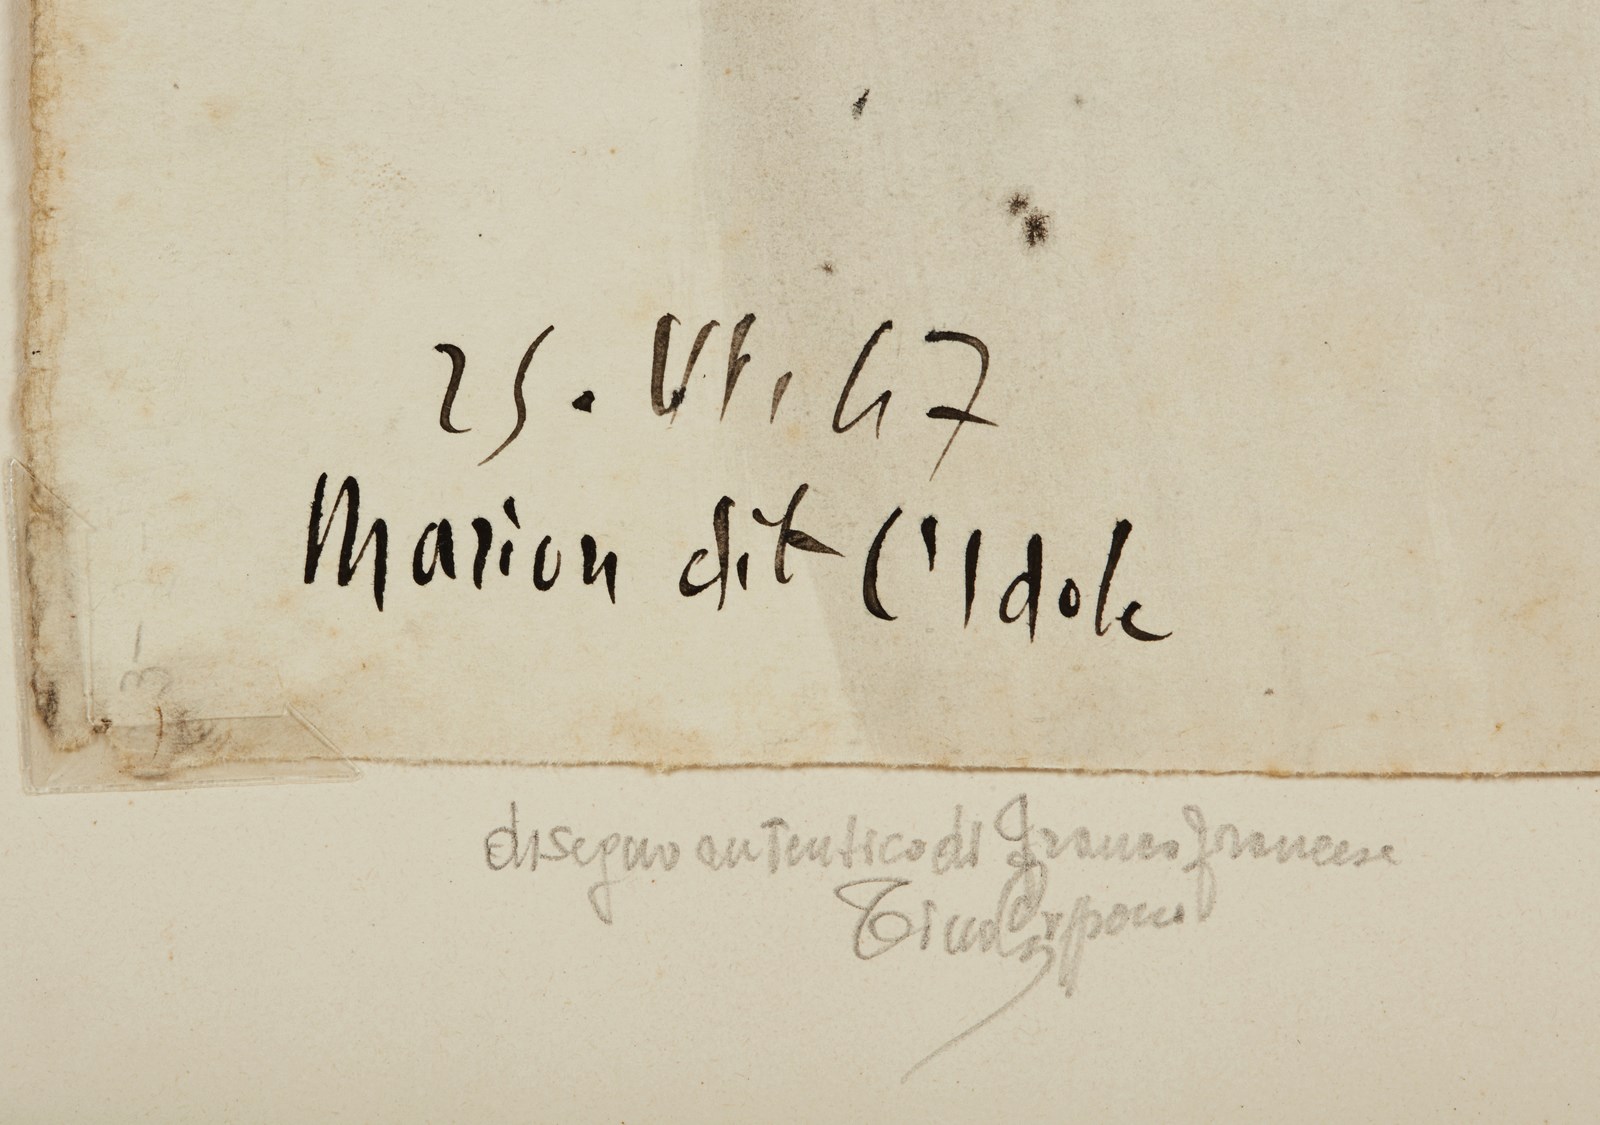 25. VI. 47
Marion dit l'Idole
3-
disegno autentico di Franco Francese